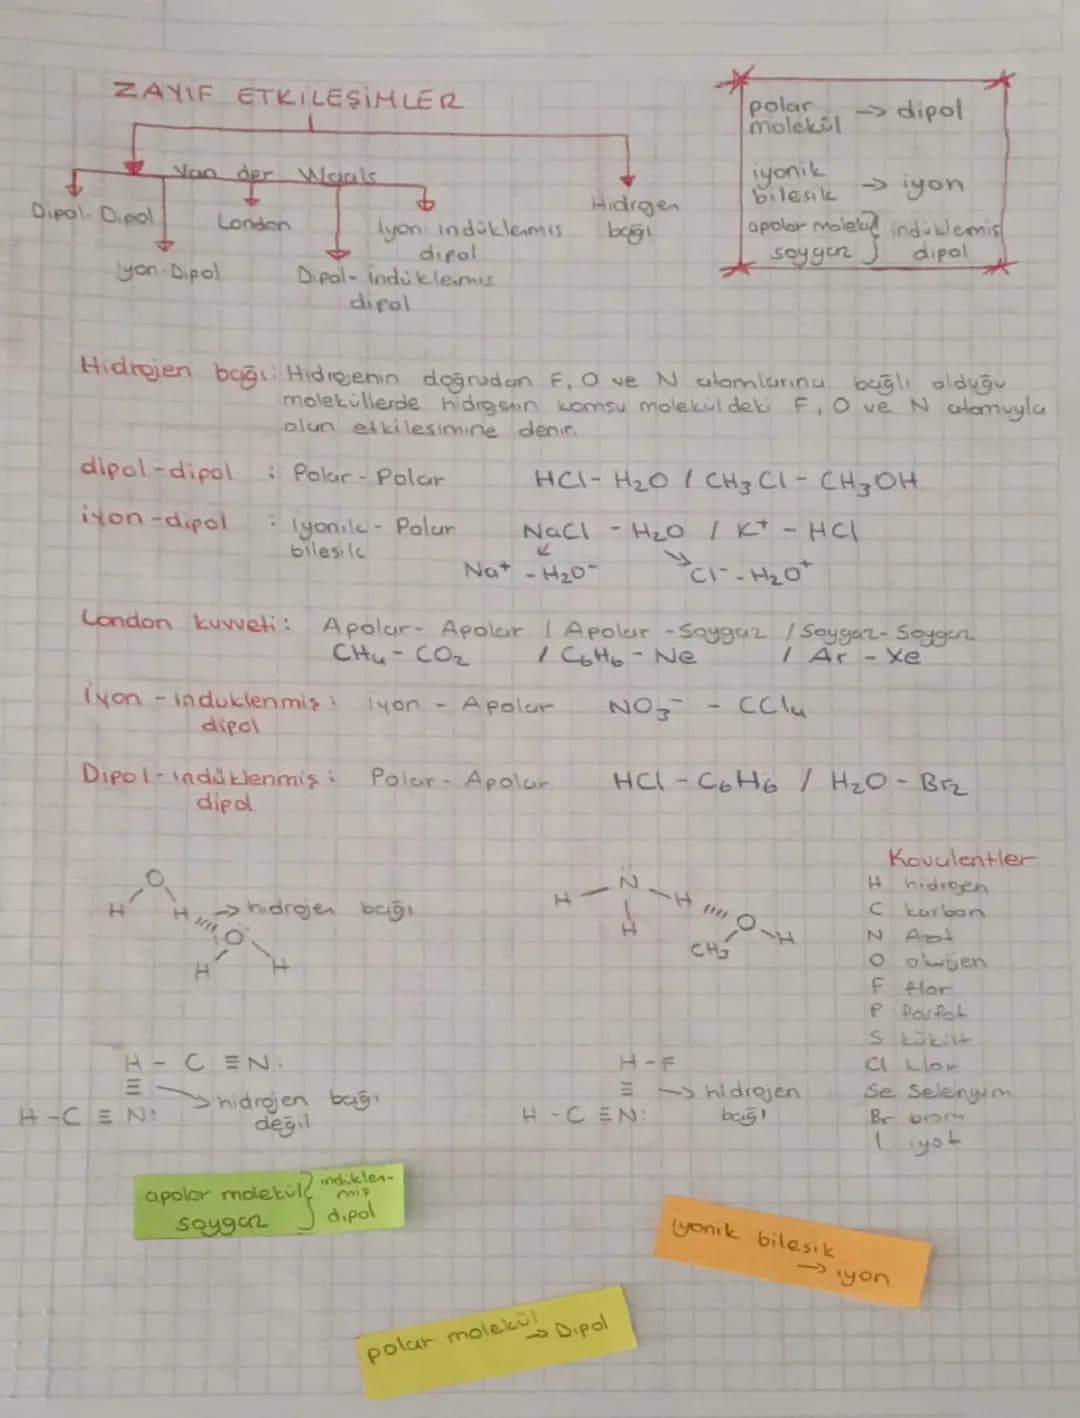 ZAYIF ETKİLEŞİMLER
Van der Waals
Dipol-Dipol
London
İyon-indüklenmiş
dipol
Hidrojen
bağı
İyon-Dipol
Dipol-indüklenmiş
dipol
polar
molekül → dipol
iyonik
bileşik → iyon
apolar molekül } indüklenmiş
soygaz dipol
Hidrojen bağı: Hidrojenin doğrudan F, O ve N atomlarına bağlı olduğu
moleküllerde hidrojenin komşu moleküldeki F, O ve N atomuyla
olan etkileşimine denir.
dipol-dipol : Polar - Polar HCl - H₂O / CH₃Cl - CH₃OH
iyon-dipol : iyonik - Polar NaCl - H₂O / K⁺ - HCl
bileşik Na⁺ - H₂O⁻ Cl⁻ - H₂O⁺
London kuvveti: Apolar - Apolar / Apolar - Soygaz / Soygaz - Soygaz
CH₄ - CO₂ / C₆H₆ - Ne / Ar - Xe
iyon - indüklenmiş : iyon - Apolar NO₃⁻ - CCl₄
dipol
Dipol - indüklenmiş : Polar - Apolar HCl - C₆H₆ / H₂O - Br₂
dipol
O
H H → hidrojen bağı
:O
H H
H - N - H
H
O
CH₃ H
Kovalentler
H hidrojen
C karbon
N Azot
O oksijen
F flor
P fosfat
S kükürt
Cl klor
Se Selenyum
Br brom
I iyot
H - C ≡ N:
H - C ≡ N: → hidrojen bağı
değil
H - F
→ hidrojen
bağı
H - C ≡ N:
apolar molekül } indüklen-
miş
soygaz dipol
iyonik bileşik
→ iyon
polar molekül
→ Dipol